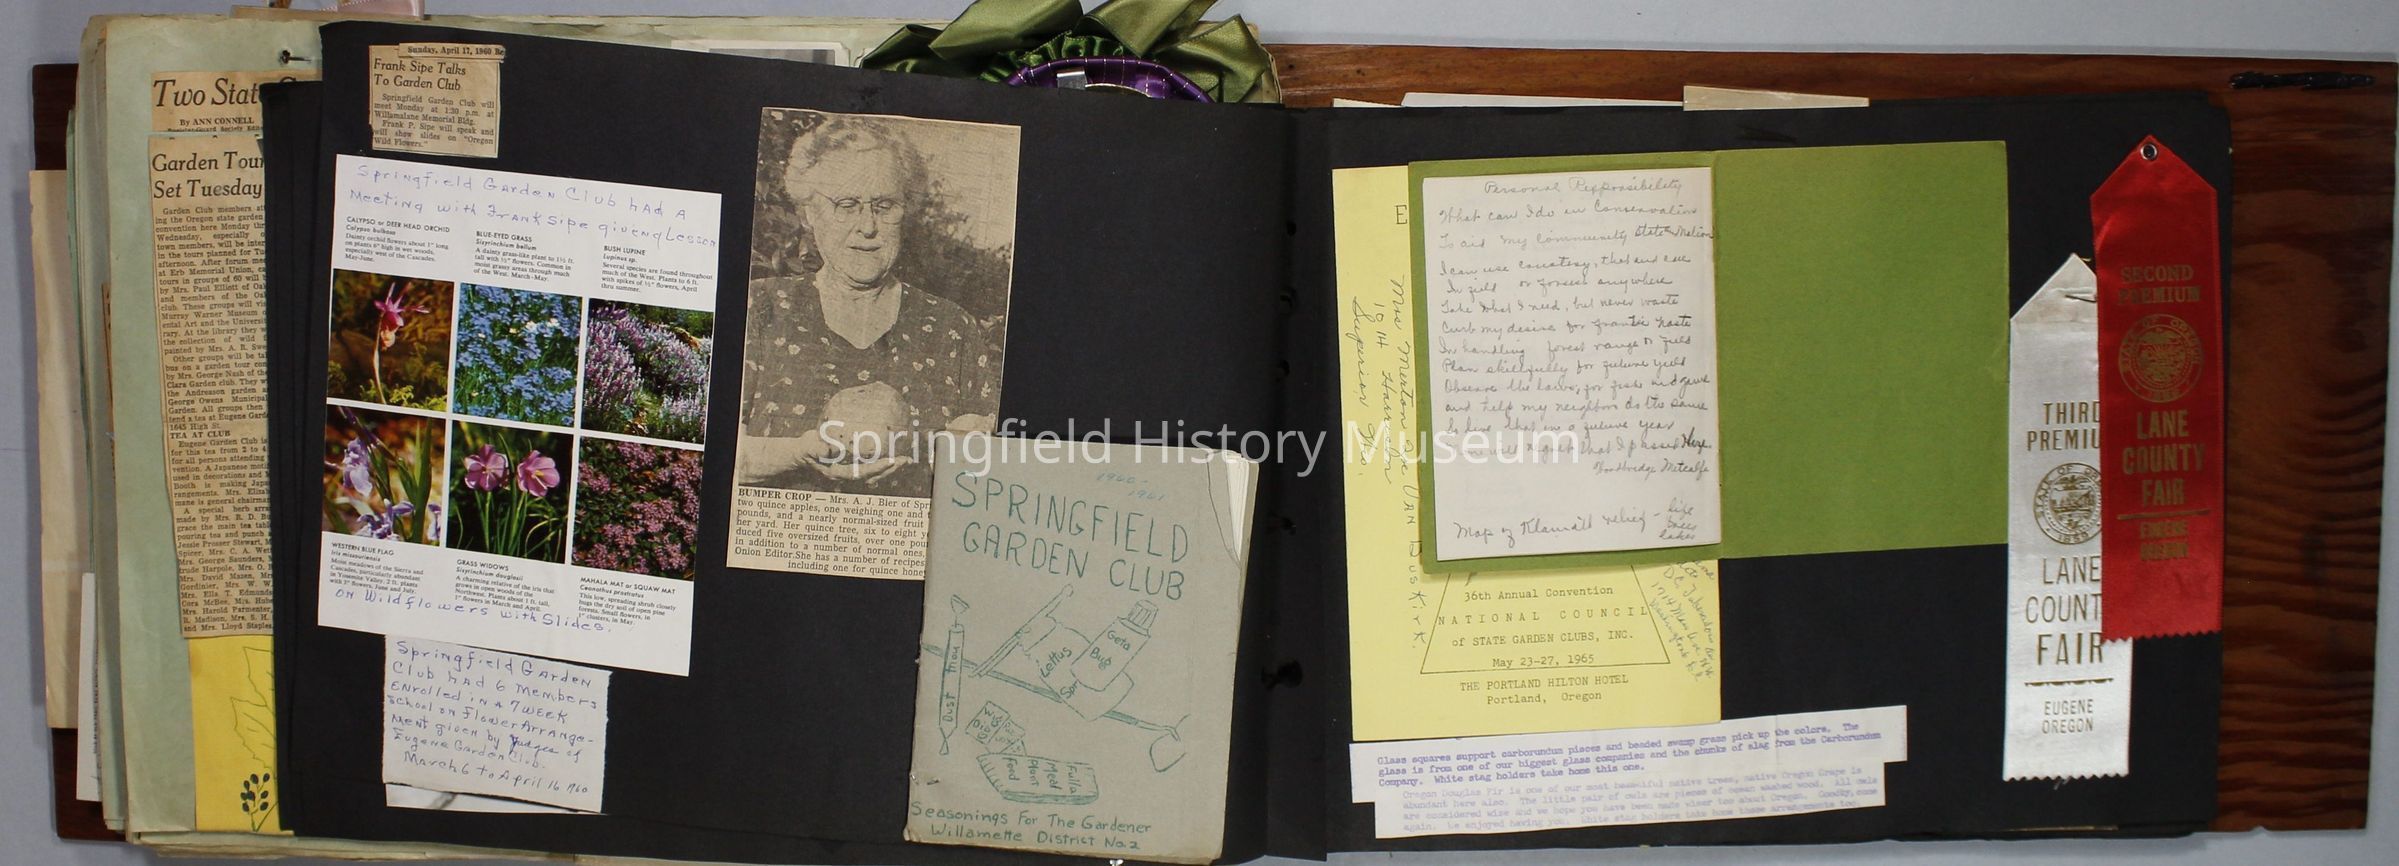 Two Stat
By ANN CONNELL
Garden Tour
Set Tuesday
Garden Club members at
ing the Oregon state garden
convention here Monday thr
Wednesday, especially o
town members, will be inter
in the tours planned for Tu
afternoon. After forum me
at Erb Memorial Union, ca
tours in groups of 60 will
by Mrs. Paul Elliott of Oa
and members of the Oa
club. These groups will vis
Murray Warner Museum o
ental Art and the Universi
rary. At the library they w
the collection of wild f
painted by Mrs. A. R. Swe
Other groups will be ta
bus on a garden tour con
by Mrs. George Nash of the
Clara Garden club. They w
the Andreason garden a
George Owens Municipal
Garden. All groups then
tend a tea at Eugene Gard
1645 High St.
TEA AT CLUB
Eugene Garden Club is
for this tea from 2 to 4
for all persons attending
vention. A Japanese moti
used in decorations and M
Booth is making Japa
rangements. Mrs. Elizab
mane is general chairman
A special herb arra
made by Mrs. R. D. Bu
grace the main tea tabl
pouring tea and punch a
Jessie Prosser Stewart, M
Spicer, Mrs. C. A. Wet
Mrs. George Saunders,
trude Harpole, Mrs. O. R
Mrs. David Mazen, Mrs
Gordinier, Mrs. W. W.
Mrs. Ella T. Edmunds
Cora McBee, Mrs. Hube
Mrs. Harold Parmenter,
R. Madison, Mrs. S. H.
and Mrs. Lloyd Staples
Sunday, April 17, 1960 Re
Frank Sipe Talks
To Garden Club
Springfield Garden Club will
meet Monday at 1:30 p.m. at
Willamalane Memorial Bldg.
Frank P. Sipe will speak and
will show slides on "Oregon
Wild Flowers."
Springfield Garden Club had A
Meeting with Frank Sipe giveng Lesson
CALYPSO or DEER HEAD ORCHID
Calypso bulbosa
Dainty orchid flowers about 1" long
on plants 6" high in wet woods,
especially west of the Cascades.
May-June.
BLUE-EYED GRASS
Sisyrinchium bellum
A dainty grass-like plant to 1½ ft.
tall with ½" flowers. Common in
moist grassy areas through much
of the West. March-May.
BUSH LUPINE
Lupinus sp.
Several species are found throughout
much of the West. Plants to 6 ft.
with spikes of ½" flowers, April
thru summer.
WESTERN BLUE FLAG
Iris missouriensis
Moist meadows of the Sierra and
Cascades, particularly abundant
in Yosemite Valley. 2 ft. plants
with 3" flowers, June and July.
GRASS WIDOWS
Sisyrinchium douglasii
A charming relative of the iris that
grows in open woods of the
Northwest. Plants about 1 ft. tall,
1" flowers in March and April.
MAHALA MAT or SQUAW MAT
Ceanothus prostratus
This low, spreading shrub closely
hugs the dry soil of open pine
forests. Small flowers, in
1" clusters, in May.
on Wildflowers with Slides.
Springfield Garden
Club had 6 members
Enrolled in A 7 week
School on Flower Arrange-
ment given by Judges of
Eugene Garden Club.
March 6 to April 16 1960
BUMPER CROP — Mrs. A. J. Bier of Spr
two quince apples, one weighing one and
pounds, and a nearly normal-sized fruit
her yard. Her quince tree, six to eight y
duced five oversized fruits, over one pou
in addition to a number of normal ones.
Onion Editor. She has a number of recipes
including one for quince hone
1960-
1961
SPRINGFIELD
GARDEN CLUB
Dust Mou
Lettus
Spr
Geta
Bug
Food
Plant
Meal
Fulla
Seasonings For The Gardener
Willamette District No. 2
Springfield History Museum
E
Mrs Merton De Van Buskirk
1014 Harrison
Superior Wis.
Personal Responsibility
What can I do in Conservation
To aid my Community State Nation
I can use courtesy, that and care
In field or forest anywhere
Take what I need, but never waste
Curb my desire for frantic haste
In handling forest range or field
Plan skillfully for future yield
Observe the laws, for fish and game
and help my neighbors do the same
So live that in a future year
None will regret that I passed Here.
Woodbridge Metcalfe
Map of Klamath relief - life
trees
lakes
36th Annual Convention
NATIONAL COUNCIL
of STATE GARDEN CLUBS, INC.
May 23-27, 1965
THE PORTLAND HILTON HOTEL
Portland, Oregon
Glass squares support carborundum pieces and beaded swamp grass pick up the colors. The
glass is from one of our biggest glass companies and the chunks of slag from the Carborundum
Company. White stag holders take home this one.
Oregon Douglas Fir is one of our most beautiful native trees, native Oregon Grape is
abundant here also. The little pair of owls are pieces of ocean washed wood. All owls
are considered wise and we hope you have been made wiser too about Oregon. Goodby, come
again. We enjoyed having you. White stag holders take home these arrangements too.
THIRD
PREMIU
STATE OF OREGON
1859
LANE
COUNT
FAIR
EUGENE
OREGON
SECOND
PREMIUM
STATE OF OREGON
1859
LANE
COUNTY
FAIR
EUGENE
OREGON